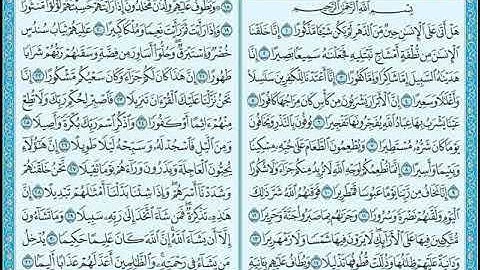 بِسْمِ اللَّهِ الرَّحْمَٰنِ الرَّحِيمِ
هَلْ أَتَىٰ عَلَى الْإِنسَٰنِ حِينٌ مِّنَ الدَّهْرِ لَمْ يَكُن شَيْـًٔا مَّذْكُورًا ﴿١﴾ إِنَّا خَلَقْنَا
الْإِنسَٰنَ مِن نُّطْفَةٍ أَمْشَاجٍ نَّبْتَلِيهِ فَجَعَلْنَٰهُ سَمِيعًا بَصِيرًا ﴿٢﴾ إِنَّا
هَدَيْنَٰهُ السَّبِيلَ إِمَّا شَاكِرًا وَإِمَّا كَفُورًا ﴿٣﴾ إِنَّا أَعْتَدْنَا لِلْكَٰفِرِينَ سَلَٰسِلَا
وَأَغْلَٰلًا وَسَعِيرًا ﴿٤﴾ إِنَّ الْأَبْرَارَ يَشْرَبُونَ مِن كَأْسٍ كَانَ مِزَاجُهَا كَافُورًا ﴿٥﴾
عَيْنًا يَشْرَبُ بِهَا عِبَادُ اللَّهِ يُفَجِّرُونَهَا تَفْجِيرًا ﴿٦﴾ يُوفُونَ بِالنَّذْرِ وَيَخَافُونَ
يَوْمًا كَانَ شَرُّهُ مُسْتَطِيرًا ﴿٧﴾ وَيُطْعِمُونَ الطَّعَامَ عَلَىٰ حُبِّهِ مِسْكِينًا
وَيَتِيمًا وَأَسِيرًا ﴿٨﴾ إِنَّمَا نُطْعِمُكُمْ لِوَجْهِ اللَّهِ لَا نُرِيدُ مِنكُمْ جَزَآءً وَلَا شُكُورًا
﴿٩﴾ إِنَّا نَخَافُ مِن رَّبِّنَا يَوْمًا عَبُوسًا قَمْطَرِيرًا ﴿١٠﴾ فَوَقَىٰهُمُ اللَّهُ شَرَّ ذَٰلِكَ
الْيَوْمِ وَلَقَّىٰهُمْ نَضْرَةً وَسُرُورًا ﴿١١﴾ وَجَزَىٰهُم بِمَا صَبَرُوا جَنَّةً وَحَرِيرًا ﴿١٢﴾
مُّتَّكِـِٔينَ فِيهَا عَلَى الْأَرَآئِكِ لَا يَرَوْنَ فِيهَا شَمْسًا وَلَا زَمْهَرِيرًا ﴿١٣﴾
وَدَانِيَةً عَلَيْهِمْ ظِلَٰلُهَا وَذُلِّلَتْ قُطُوفُهَا تَذْلِيلًا ﴿١٤﴾ وَيُطَافُ عَلَيْهِم بِـَٔانِيَةٍ
﴿١٨﴾ وَيَطُوفُ عَلَيْهِمْ وِلْدَٰنٌ مُّخَلَّدُونَ إِذَا رَأَيْتَهُمْ حَسِبْتَهُمْ لُؤْلُؤًا مَّنثُورًا
﴿١٩﴾ وَإِذَا رَأَيْتَ ثَمَّ رَأَيْتَ نَعِيمًا وَمُلْكًا كَبِيرًا ﴿٢٠﴾ عَٰلِيَهُمْ ثِيَابُ سُندُسٍ
خُضْرٌ وَإِسْتَبْرَقٌ وَحُلُّوا أَسَاوِرَ مِن فِضَّةٍ وَسَقَىٰهُمْ رَبُّهُمْ شَرَابًا
طَهُورًا ﴿٢١﴾ إِنَّ هَٰذَا كَانَ لَكُمْ جَزَآءً وَكَانَ سَعْيُكُم مَّشْكُورًا ﴿٢٢﴾ إِنَّا
نَحْنُ نَزَّلْنَا عَلَيْكَ الْقُرْءَانَ تَنزِيلًا ﴿٢٣﴾ فَاصْبِرْ لِحُكْمِ رَبِّكَ وَلَا تُطِعْ
مِنْهُمْ ءَاثِمًا أَوْ كَفُورًا ﴿٢٤﴾ وَاذْكُرِ اسْمَ رَبِّكَ بُكْرَةً وَأَصِيلًا ﴿٢٥﴾
وَمِنَ الَّيْلِ فَاسْجُدْ لَهُ وَسَبِّحْهُ لَيْلًا طَوِيلًا ﴿٢٦﴾ إِنَّ هَٰٓؤُلَآءِ
يُحِبُّونَ الْعَاجِلَةَ وَيَذَرُونَ وَرَآءَهُمْ يَوْمًا ثَقِيلًا ﴿٢٧﴾ نَّحْنُ خَلَقْنَٰهُمْ
وَشَدَدْنَآ أَسْرَهُمْ وَإِذَا شِئْنَا بَدَّلْنَآ أَمْثَٰلَهُمْ تَبْدِيلًا ﴿٢٨﴾ إِنَّ
هَٰذِهِ تَذْكِرَةٌ فَمَن شَآءَ اتَّخَذَ إِلَىٰ رَبِّهِ سَبِيلًا ﴿٢٩﴾ وَمَا تَشَآءُونَ
إِلَّآ أَن يَشَآءَ اللَّهُ إِنَّ اللَّهَ كَانَ عَلِيمًا حَكِيمًا ﴿٣٠﴾ يُدْخِلُ
مَن يَشَآءُ فِي رَحْمَتِهِ وَالظَّٰلِمِينَ أَعَدَّ لَهُمْ عَذَابًا أَلِيمًا ﴿٣١﴾